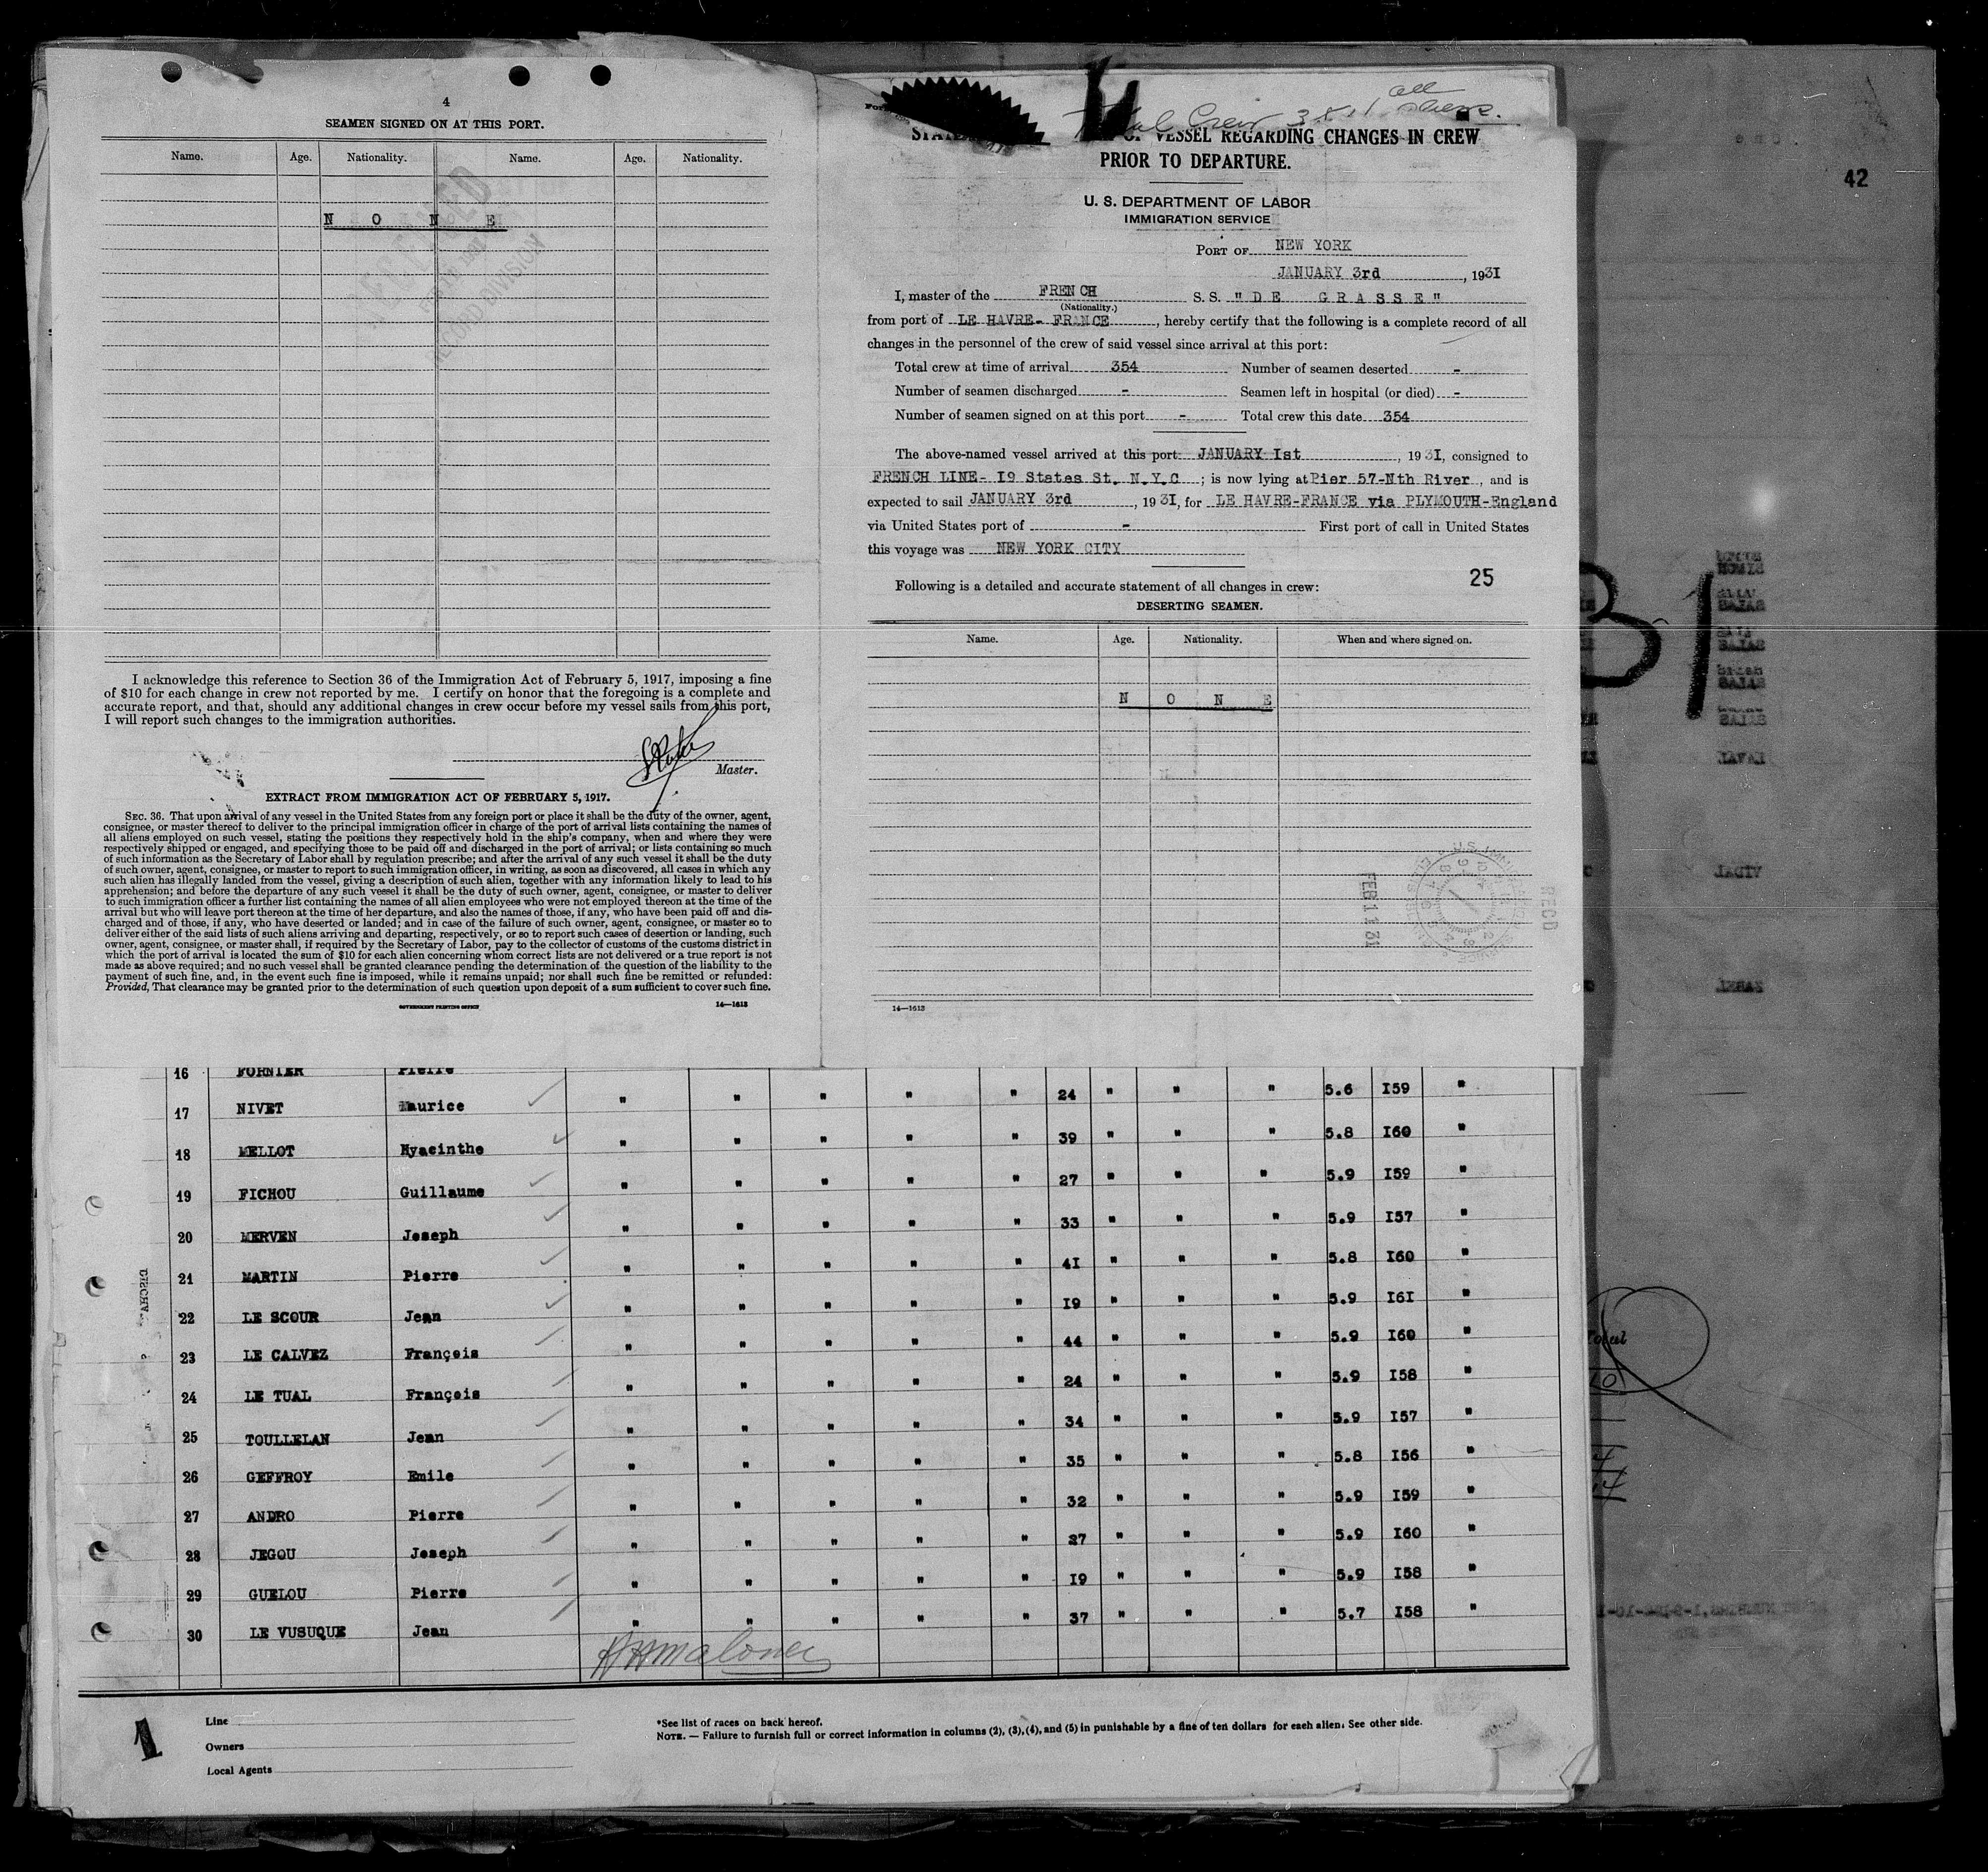 4
SEAMEN SIGNED ON AT THIS PORT.
Name. Age. Nationality. Name. Age. Nationality.
N O N E
RECORD DIVISION
I acknowledge this reference to Section 36 of the Immigration Act of February 5, 1917, imposing a fine
of $10 for each change in crew not reported by me. I certify on honor that the foregoing is a complete and
accurate report, and that, should any additional changes in crew occur before my vessel sails from this port,
I will report such changes to the immigration authorities.
Master.
EXTRACT FROM IMMIGRATION ACT OF FEBRUARY 5, 1917.
SEC. 36. That upon arrival of any vessel in the United States from any foreign port or place it shall be the duty of the owner, agent,
consignee, or master thereof to deliver to the principal immigration officer in charge of the port of arrival lists containing the names of
all aliens employed on such vessel, stating the positions they respectively hold in the ship's company, when and where they were
respectively shipped or engaged, and specifying those to be paid off and discharged in the port of arrival; or lists containing so much
of such information as the Secretary of Labor shall by regulation prescribe; and after the arrival of any such vessel it shall be the duty
of such owner, agent, consignee, or master to report to such immigration officer, in writing, as soon as discovered, all cases in which any
such alien has illegally landed from the vessel, giving a description of such alien, together with any information likely to lead to his
apprehension; and before the departure of any such vessel it shall be the duty of such owner, agent, consignee, or master to deliver
to such immigration officer a further list containing the names of all alien employees who were not employed thereon at the time of the
arrival but who will leave port thereon at the time of her departure, and also the names of those, if any, who have been paid off and dis-
charged and of those, if any, who have deserted or landed; and in case of the failure of such owner, agent, consignee, or master so to
deliver either of the said lists of such aliens arriving and departing, respectively, or so to report such cases of desertion or landing, such
owner, agent, consignee, or master shall, if required by the Secretary of Labor, pay to the collector of customs of the customs district in
which the port of arrival is located the sum of $10 for each alien concerning whom correct lists are not delivered or a true report is not
made as above required; and no such vessel shall be granted clearance pending the determination of the question of the liability to the
payment of such fine, and, in the event such fine is imposed, while it remains unpaid; nor shall such fine be remitted or refunded:
Provided, That clearance may be granted prior to the determination of such question upon deposit of a sum sufficient to cover such fine.
GOVERNMENT PRINTING OFFICE 14—1613
Total Crew all
VESSEL REGARDING CHANGES IN CREW
PRIOR TO DEPARTURE.
U. S. DEPARTMENT OF LABOR
IMMIGRATION SERVICE
PORT OF NEW YORK
JANUARY 3rd, 1931
I, master of the FRENCH S.S. "DE GRASSE"
(Nationality.)
from port of LE HAVRE- FRANCE, hereby certify that the following is a complete record of all
changes in the personnel of the crew of said vessel since arrival at this port:
Total crew at time of arrival 354 Number of seamen deserted -
Number of seamen discharged - Seamen left in hospital (or died) -
Number of seamen signed on at this port - Total crew this date 354
The above-named vessel arrived at this port: JANUARY Ist, 1931, consigned to
FRENCH LINE- I9 States St. N.Y.C; is now lying at Pier 57-Nth River, and is
expected to sail JANUARY 3rd, 1931, for LE HAVRE-FRANCE via PLYMOUTH-England
via United States port of - First port of call in United States
this voyage was NEW YORK CITY
25
Following is a detailed and accurate statement of all changes in crew:
DESERTING SEAMEN.
Name. Age. Nationality. When and where signed on.
N O N E
FEB 11 31
RECD
14—1613
42
31
16 FORNIER Pierre
17 NIVET Maurice " " " " " 24 " " " 5.6 I59 "
18 MELLOT Hyacinthe " " " " " 39 " " " 5.8 I60 "
19 FICHOU Guillaume " " " " " 27 " " " 5.9 I59 "
20 MERVEN Joseph " " " " " 33 " " " 5.9 I57 "
21 MARTIN Pierre " " " " " 4I " " " 5.8 I60 "
22 LE SCOUR Jean " " " " " I9 " " " 5.9 I6I "
23 LE CALVEZ François " " " " " 44 " " " 5.9 I60 "
24 LE TUAL François " " " " " 24 " " " 5.9 I58 "
25 TOULLELAN Jean " " " " " 34 " " " 5.9 I57 "
26 GEFFROY Emile " " " " " 35 " " " 5.8 I56 "
27 ANDRO Pierre " " " " " 32 " " " 5.9 I59 "
28 JEGOU Joseph " " " " " 27 " " " 5.9 I60 "
29 GUELOU Pierre " " " " " I9 " " " 5.9 I58 "
30 LE VUSUQUE Jean " " " " " 37 " " " 5.7 I58 "
1
Line
Owners
Local Agents
*See list of races on back hereof.
NOTE. — Failure to furnish full or correct information in columns (2), (3), (4), and (5) in punishable by a fine of ten dollars for each alien. See other side.